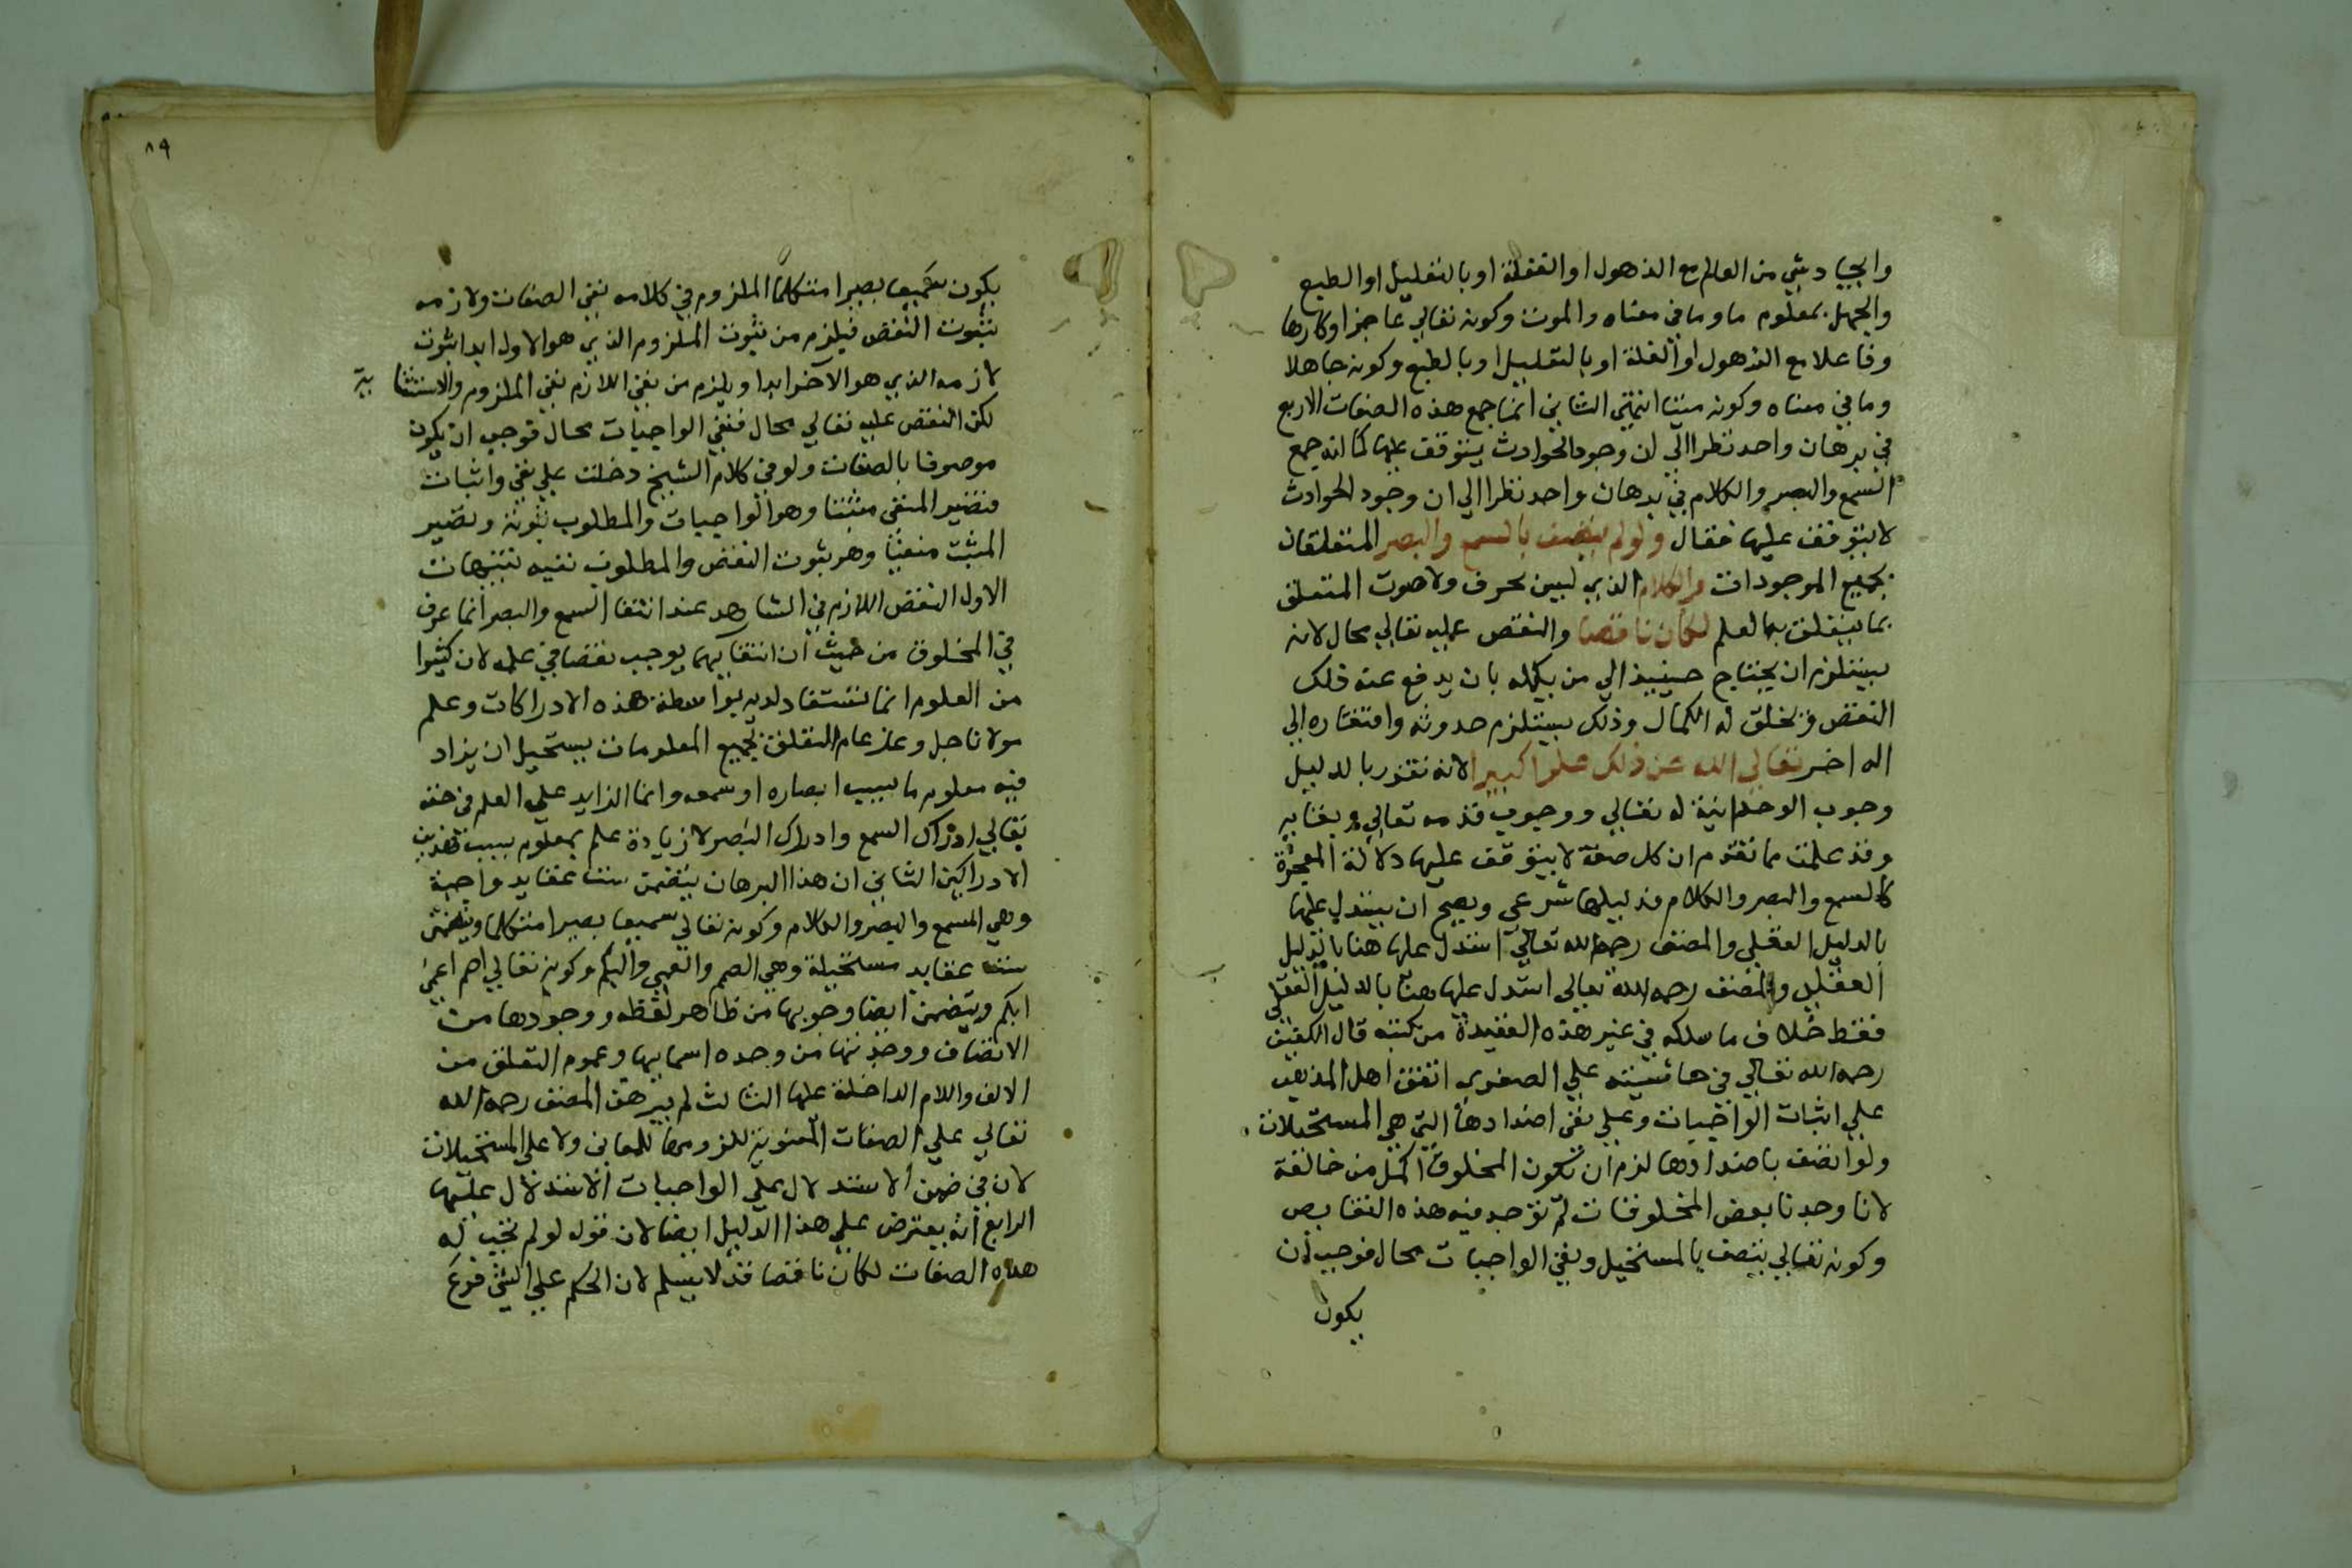 وايجاد شي من العالم مع الذهول او الغفلة او بالتعليل او الطبع
والجهل بمعلوم ما وما في معناه والموت وكونه تعالي عاجزا وكارها
وفاعلا مع الذهول او الغفلة او بالتعليل او بالطبع وكونه جاهلا
وما في معناه وكونه ميتا انتهي الثاني انما جمع هذه الصفات الاربع
في برهان واحد نظرا الي ان وجود الحوادث يتوقف عليها كما انه جمع
السمع والبصر والكلام في برهان واحد نظرا الي ان وجود الحوادث
لا يتوقف عليها فقال ولو لم يتصف بالسمع والبصر المتعلقان
بجميع الموجودات والكلام الذي ليس بحرف ولا صوت المتعلق
بما يتعلق به العلم لكان ناقصا والنقص عليه تعالي محال لانه
يستلزم ان يحتاج حينيذ الي من يكمله بان يدفع عنه ذلك
النقص ويخلق له الكمال وذلك يستلزم حدوثه وافتقاره الي
اله اخر تعالي الله عن ذلك علوا كبيرا لانه تقرر بالدليل
وجوب الوحدانية له تعالي ووجوب قدمه تعالي وبقايه
وقد علمت مما تقدم ان كل صفة لا يتوقف عليها دلالة المعجزة
كالسمع والبصر والكلام فدليلها شرعي ويصح ان يستدل عليها
بالدليل العقلي والمصنف رحمه الله تعالي استدل عليها هنا بالدليل
العقلي والمصنف رحمه الله تعالي استدل عليها هنا بالدليل العقلي
فقط خلاف ما سلكه في غير هذه العقيدة من كتبه قال الكفيف
رحمه الله تعالي في حاشيته علي الصغري اتفق اهل المذهب
علي اثبات الواجبات وعلي نفي اضدادها التي هي المستحيلات
ولو اتصف باضدادها لزم ان تكون المخلوق اكمل من خالقه
لانا وجدنا بعض المخلوقات لم توجد فيه هذه النقايص
وكونه تعالي يتصف بالمستحيل ونفي الواجبات محال فوجب ان
يكون
٨٩
يكون سميعا بصيرا متكلما الملزوم في كلامه نفي الصفات ولازمه
ثبوت النقص فيلزم من ثبوت الملزوم الذي هو الاول ابدا ثبوت
لازمه الذي هو الآخر ابدا ويلزم من نفي اللازم نفي الملزوم والاستثنائية
لكن النقص عليه تعالي محال فنفي الواجبات محال فوجب ان يكون
موصوفا بالصفات ولو في كلام الشيخ دخلت علي نفي واثبات
فتصير المنفي مثبتا وهو الواجبات والمطلوب ثبوته وتصير
المثبت منفيا وهو ثبوت النقص والمطلوب نفيه تنبيهات
الاول النقص اللازم في الشاهد عند انتفا السمع والبصر انما عرف
في المخلوق من حيث ان انتفايهما يوجب نقصا في علمه لان كثيرا
من العلوم انما تستفاد لديه بواسطة هذه الادراكات وعلم
مولانا جل وعز عام التعلق بجميع المعلومات يستحيل ان يزاد
فيه معلوم ما بسبب ابصاره او سمعه وانما الزايد علي العلم في حقه
تعالي ادراك السمع وادراك البصر لا زيادة علم بمعلوم بسبب هذين
الادراكين الثاني ان هذا البرهان يتضمن ست عقايد واجبة
وهي السمع والبصر والكلام وكونه تعالي سميعا بصيرا متكلما ويتضمن
ست عقايد مستحيلة وهي الصمم والعمي والبكم وكونه تعالي اصم اعمي
ابكم ويتضمن ايضا وجوبها من ظاهر لفظه ووجودها من
الاتصاف ووحدتها من وحده اسمايها وعموم التعلق من
الالف واللام الداخلة عليها الثالث لم يبرهن المصنف رحمه الله
تعالي علي الصفات المعنوية للزومها للمعاني ولا علي المستحيلات
لان في ضمن الاستدلال علي الواجبات الاستدلال عليها
الرابع انه يعترض علي هذا الدليل ايضا لان قوله لو لم تجب له
هذه الصفات لكان ناقصا قد لا يسلم لان الحكم علي الشي فرع